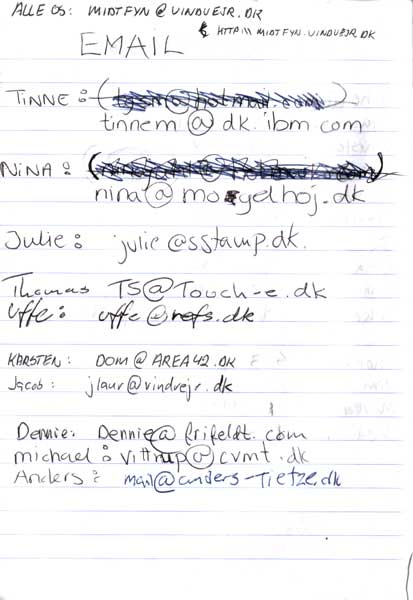 ALLE OS: MIDTFYN@VINDUEJR.DK
& HTTP:\\ MIDTFYN.VINDUEJR.DK
EMAIL
TINNE:
tinnem@dk.ibm com
NINA:
nina@mo gelhoj.dk
Julie: julie@sstamp.dk.
Thomas TS@Touch-e.dk
Uffe: uffe@nefs.dk
KARSTEN: DOM@AREA42.DK
Jacob: jlaur@vinduejr.dk
Dennie: Dennie@frifeldt.com
michael: Vittrup@cvmt.dk
Anders: mail@anders-Tietze.dk